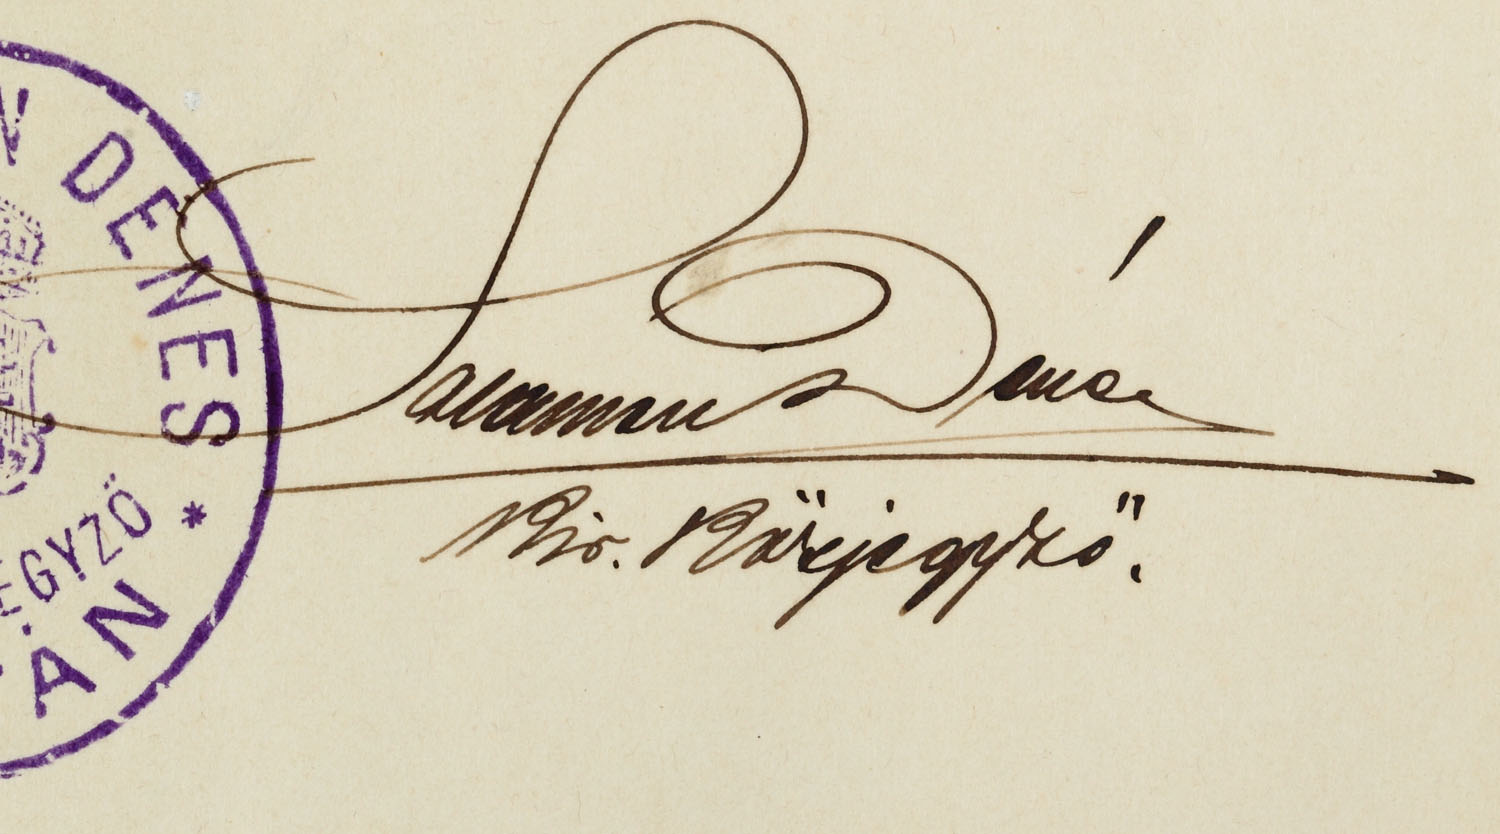 N DÉNES
EGYZŐ *
ÁN
Salamon Dénes
Kir. Közjegyző.